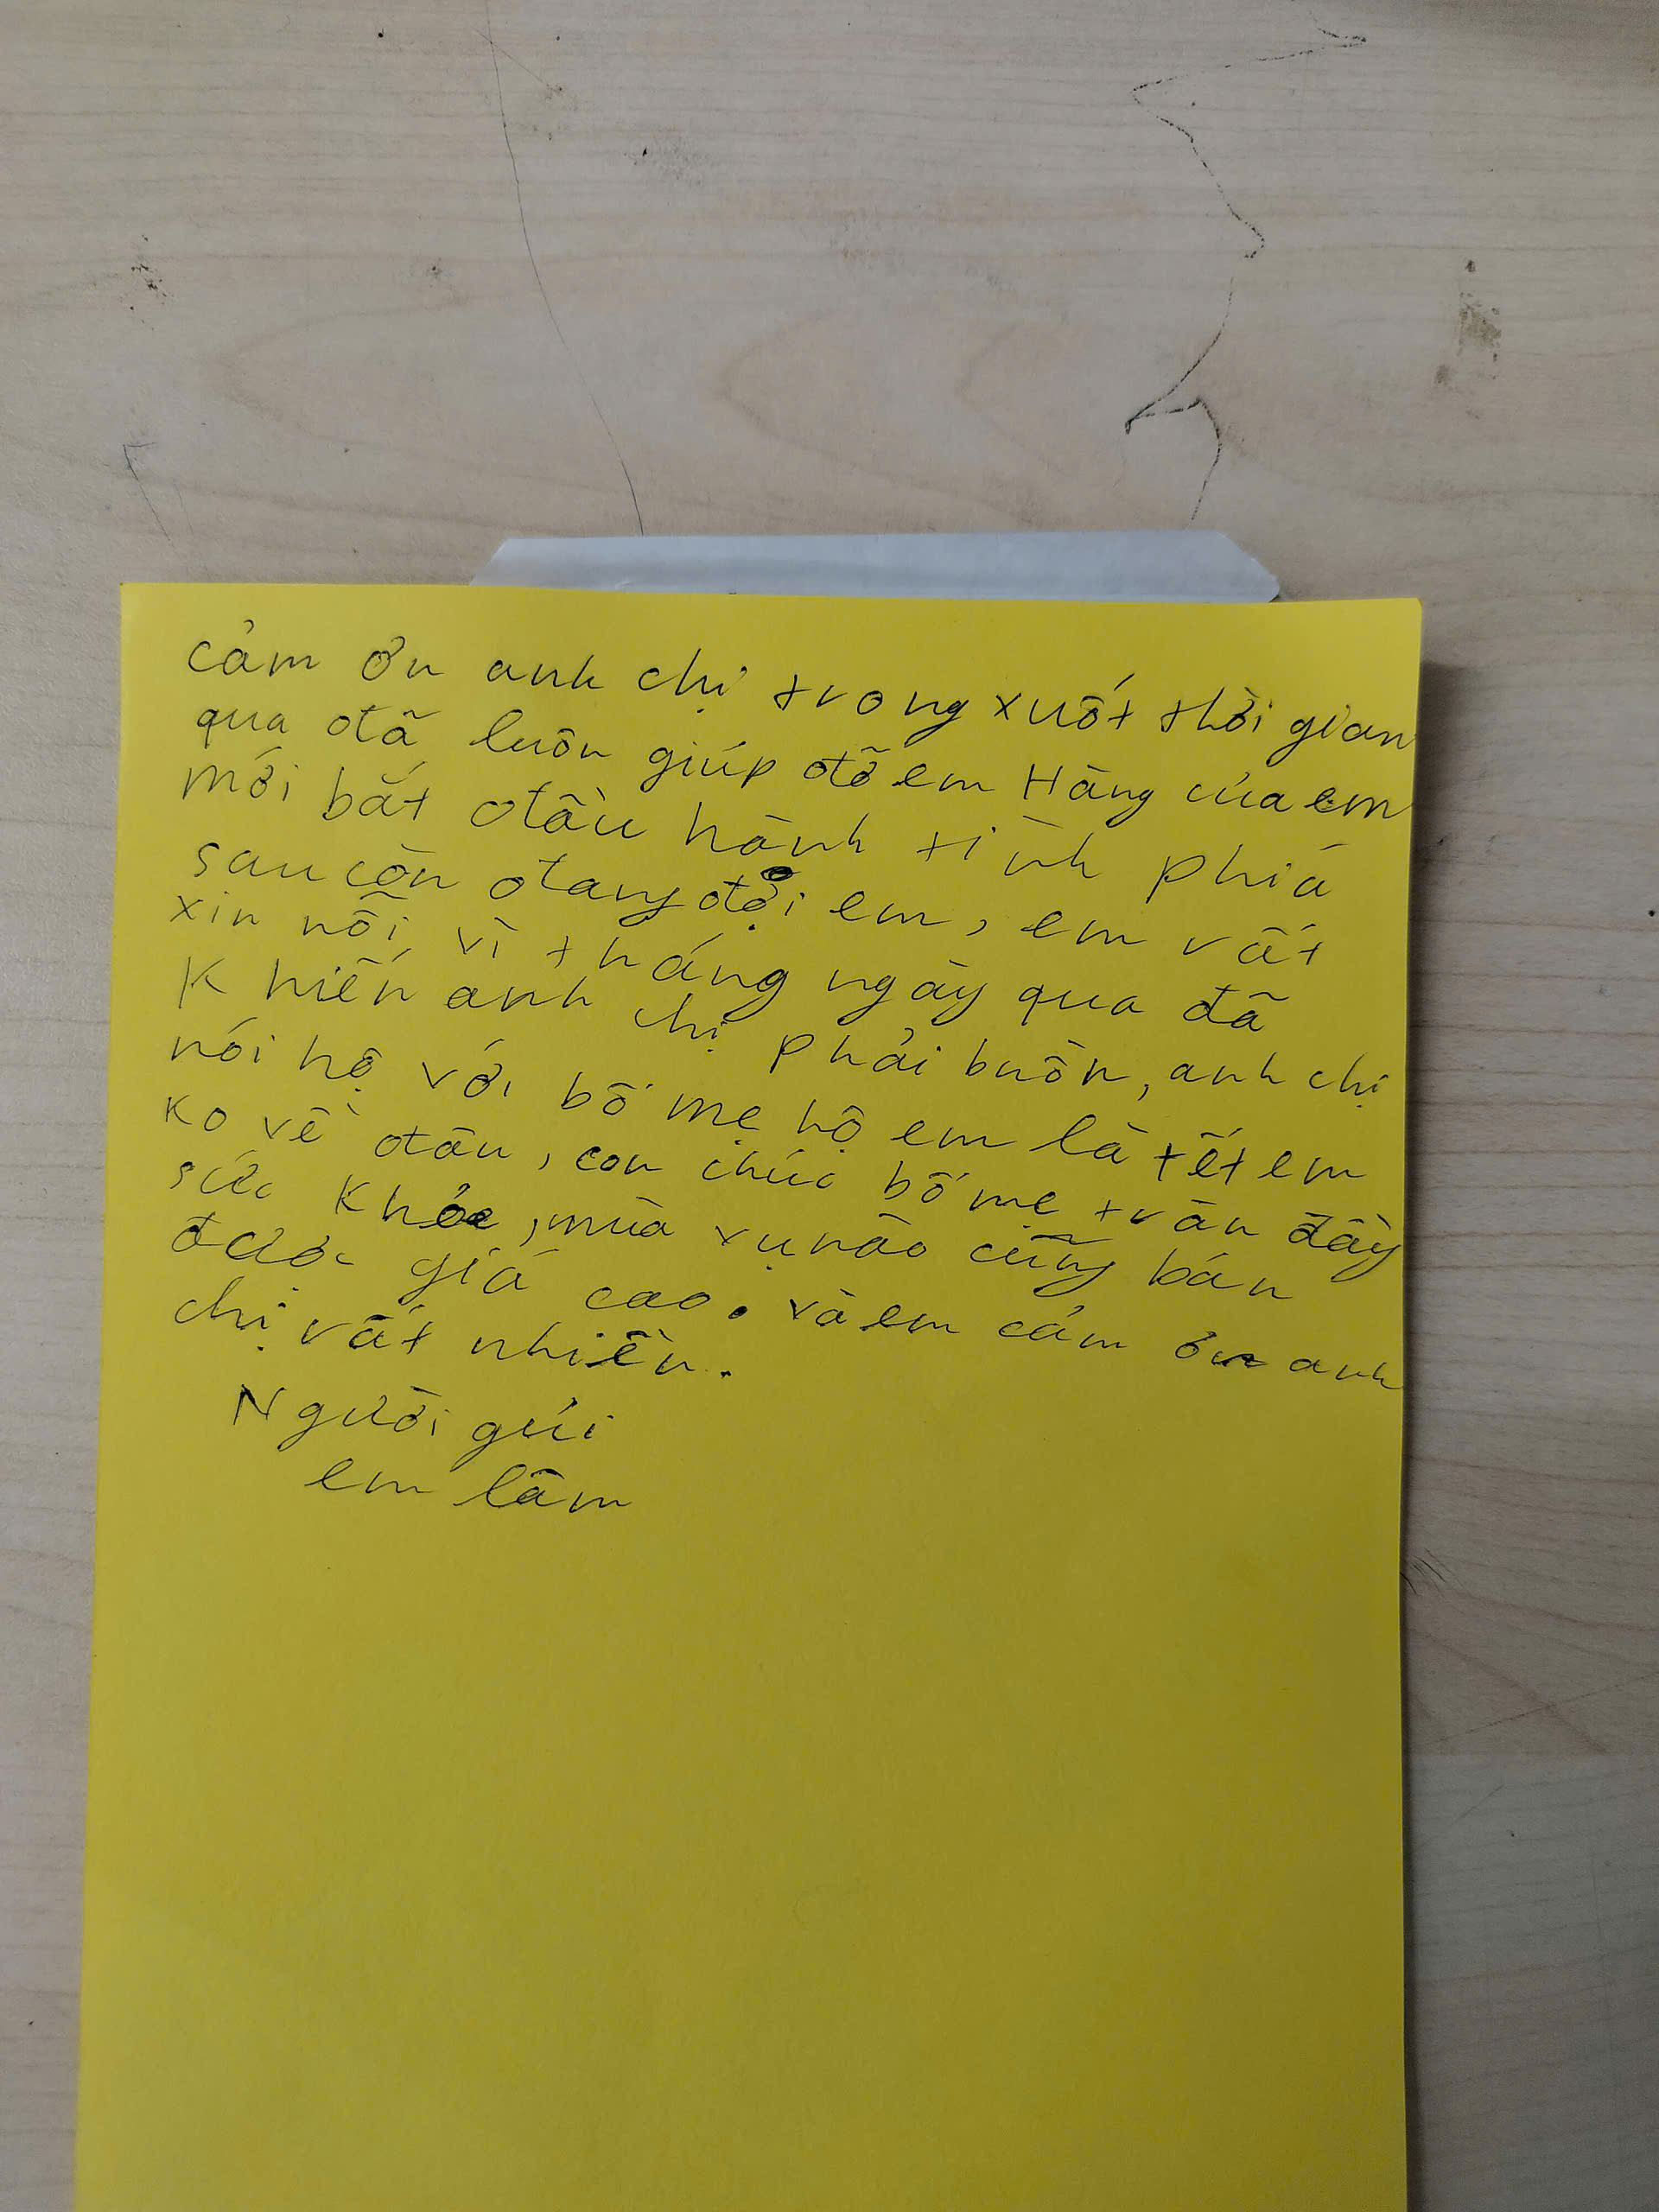 cảm ơn anh chị trong xuốt thời gian
qua đã luôn giúp đỡ em Hăng của em
mới bắt đầu hành tình phiá
sau còn đang đợi em, em rất
xin nỗi, vì tháng ngày qua đã
Khiến anh chị phải buồn, anh chị
nói hộ với bố mẹ hộ em là tết em
ko về đâu, con chúc bố mẹ tràn đầy
sức Khỏe, mùa vụ nào cũng bán
được giá cao. và em cảm ơn anh
chị rất nhiền.
Người gửi
em lâm